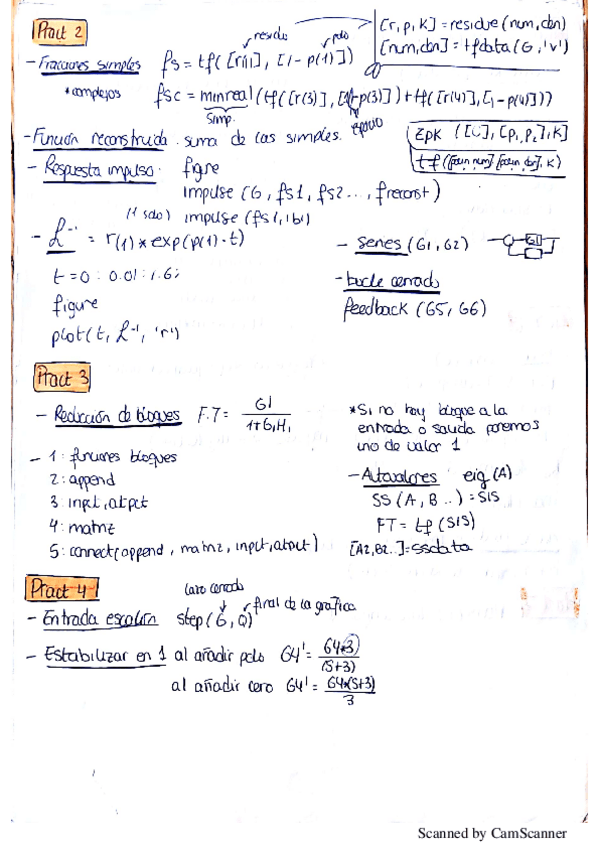 Pract 2
[r, p, k] = residue (num, den)
[num, den] = tfdata (G, 'v')
residuo
polo
- Fracciones simples fs = tf( [r(1)], [1 - p(1)])
* complejos fsc = minreal (tf([r(3)], [1 - p(3)]) + tf([r(4)], [1 - p(4)]))
simp.
espacio
- Función reconstruida. suma de las simples.
zpk ([c], [p1, p2], k]
- Respuesta impulso. figure
impulse (G, fs1, fs2 ..., freconst)
(1 solo) impulse (fs1, 'b')
- L⁻¹ = r(1) * exp(p(1) · t)
t = 0 : 0.01 : 1.6;
figure
plot(t, L⁻¹, 'r')
- series (G1, G2)
- bucle cerrado
feedback (G5, G6)
Pract 3
- Reducción de bloques F.T = G1 / 1+G1H1
* Si no hay bloque a la
entrada o salida ponemos
uno de valor 1
- 1: funciones bloques
2: append
3: input, output
4: matriz
5: connect (append, matriz, input, output)
- Autovalores eig (A)
SS (A, B ..) = SIS
FT = tf (SIS)
[A2, B2..] = ssdata
Pract 4
lazo cerrado
final de la gráfica
- Entrada escalón step (G, Q)
- Estabilizar en 1 al añadir polo G4' = G4*3 / (S+3)
al añadir cero G4' = G4*(S+3) / 3
Scanned by CamScanner